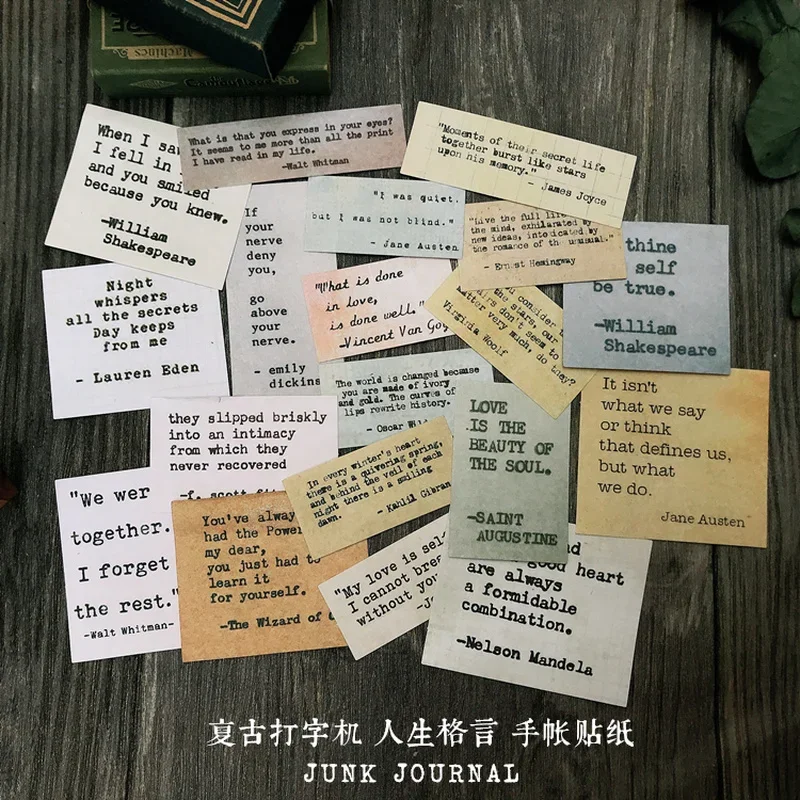 Machines
When I saw
I fell in
and you smiled
because you knew.
-William
Shakespeare
What is that you express in your eyes?
It seems to me more than all the print
I have read in my life.
-Walt Whitman
"Moments of their secret life
together burst like stars
upon his memory."
- James Joyce
If
your
nerve
deny
you,
go
above
your
nerve.
- emily
dickins
"I was quiet,
but I was not blind."
- Jane Austen
"Live the full life
the mind, exhilarated by
new ideas, intoxicated by
the romance of the unusual."
- Ernest Hemingway
thine
self
be true.
-William
Shakespeare
Night
whispers
all the secrets
Day keeps
from me
- Lauren Eden
"What is done
in love,
is done well."
-Vincent Van Gog
you consider
the stars, our
airs don't seem to
matter very much, do they?
Virginia Woolf
The world is changed because
you are made of ivory
and gold. The curves of
lips rewrite history.
- Oscar Wil
they slipped briskly
into an intimacy
from which they
never recovered
-f. scott
LOVE
IS THE
BEAUTY OF
THE SOUL.
-SAINT
AUGUSTINE
It isn't
what we say
or think
that defines us,
but what
we do.
Jane Austen
In every winter's heart
there is a quivering spring,
and behind the veil of each
night there is a smiling
dawn.
- Kahlil Gibran
"We wer
together.
I forget
the rest."
-Walt Whitman-
You've alway
had the Power
my dear,
you just had to
learn it
for yourself.
-The Wizard of
"My love is sel
I cannot brea
without you
-Jo
good heart
are always
a formidable
combination.
-Nelson Mandela
复古打字机 人生格言 手帐贴纸
JUNK JOURNAL